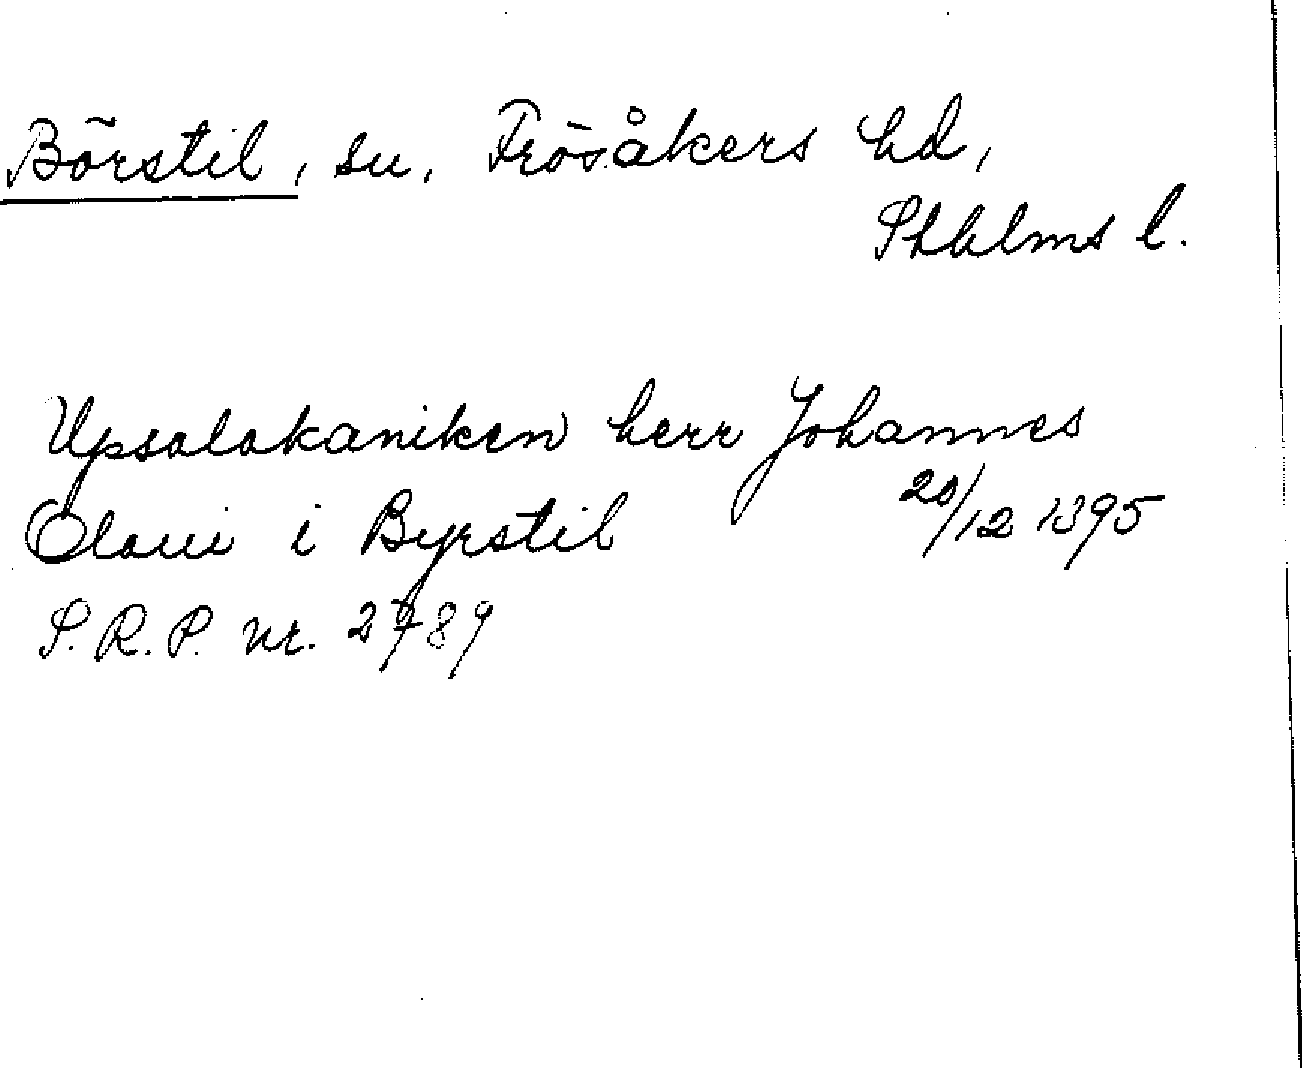 Börstil, sn, Frösåkers hd,
Sthlms l.
Upsalakaniken herr Johannes
Olaui i Byrstil 20/12 1395
S.R.P. nr. 2789